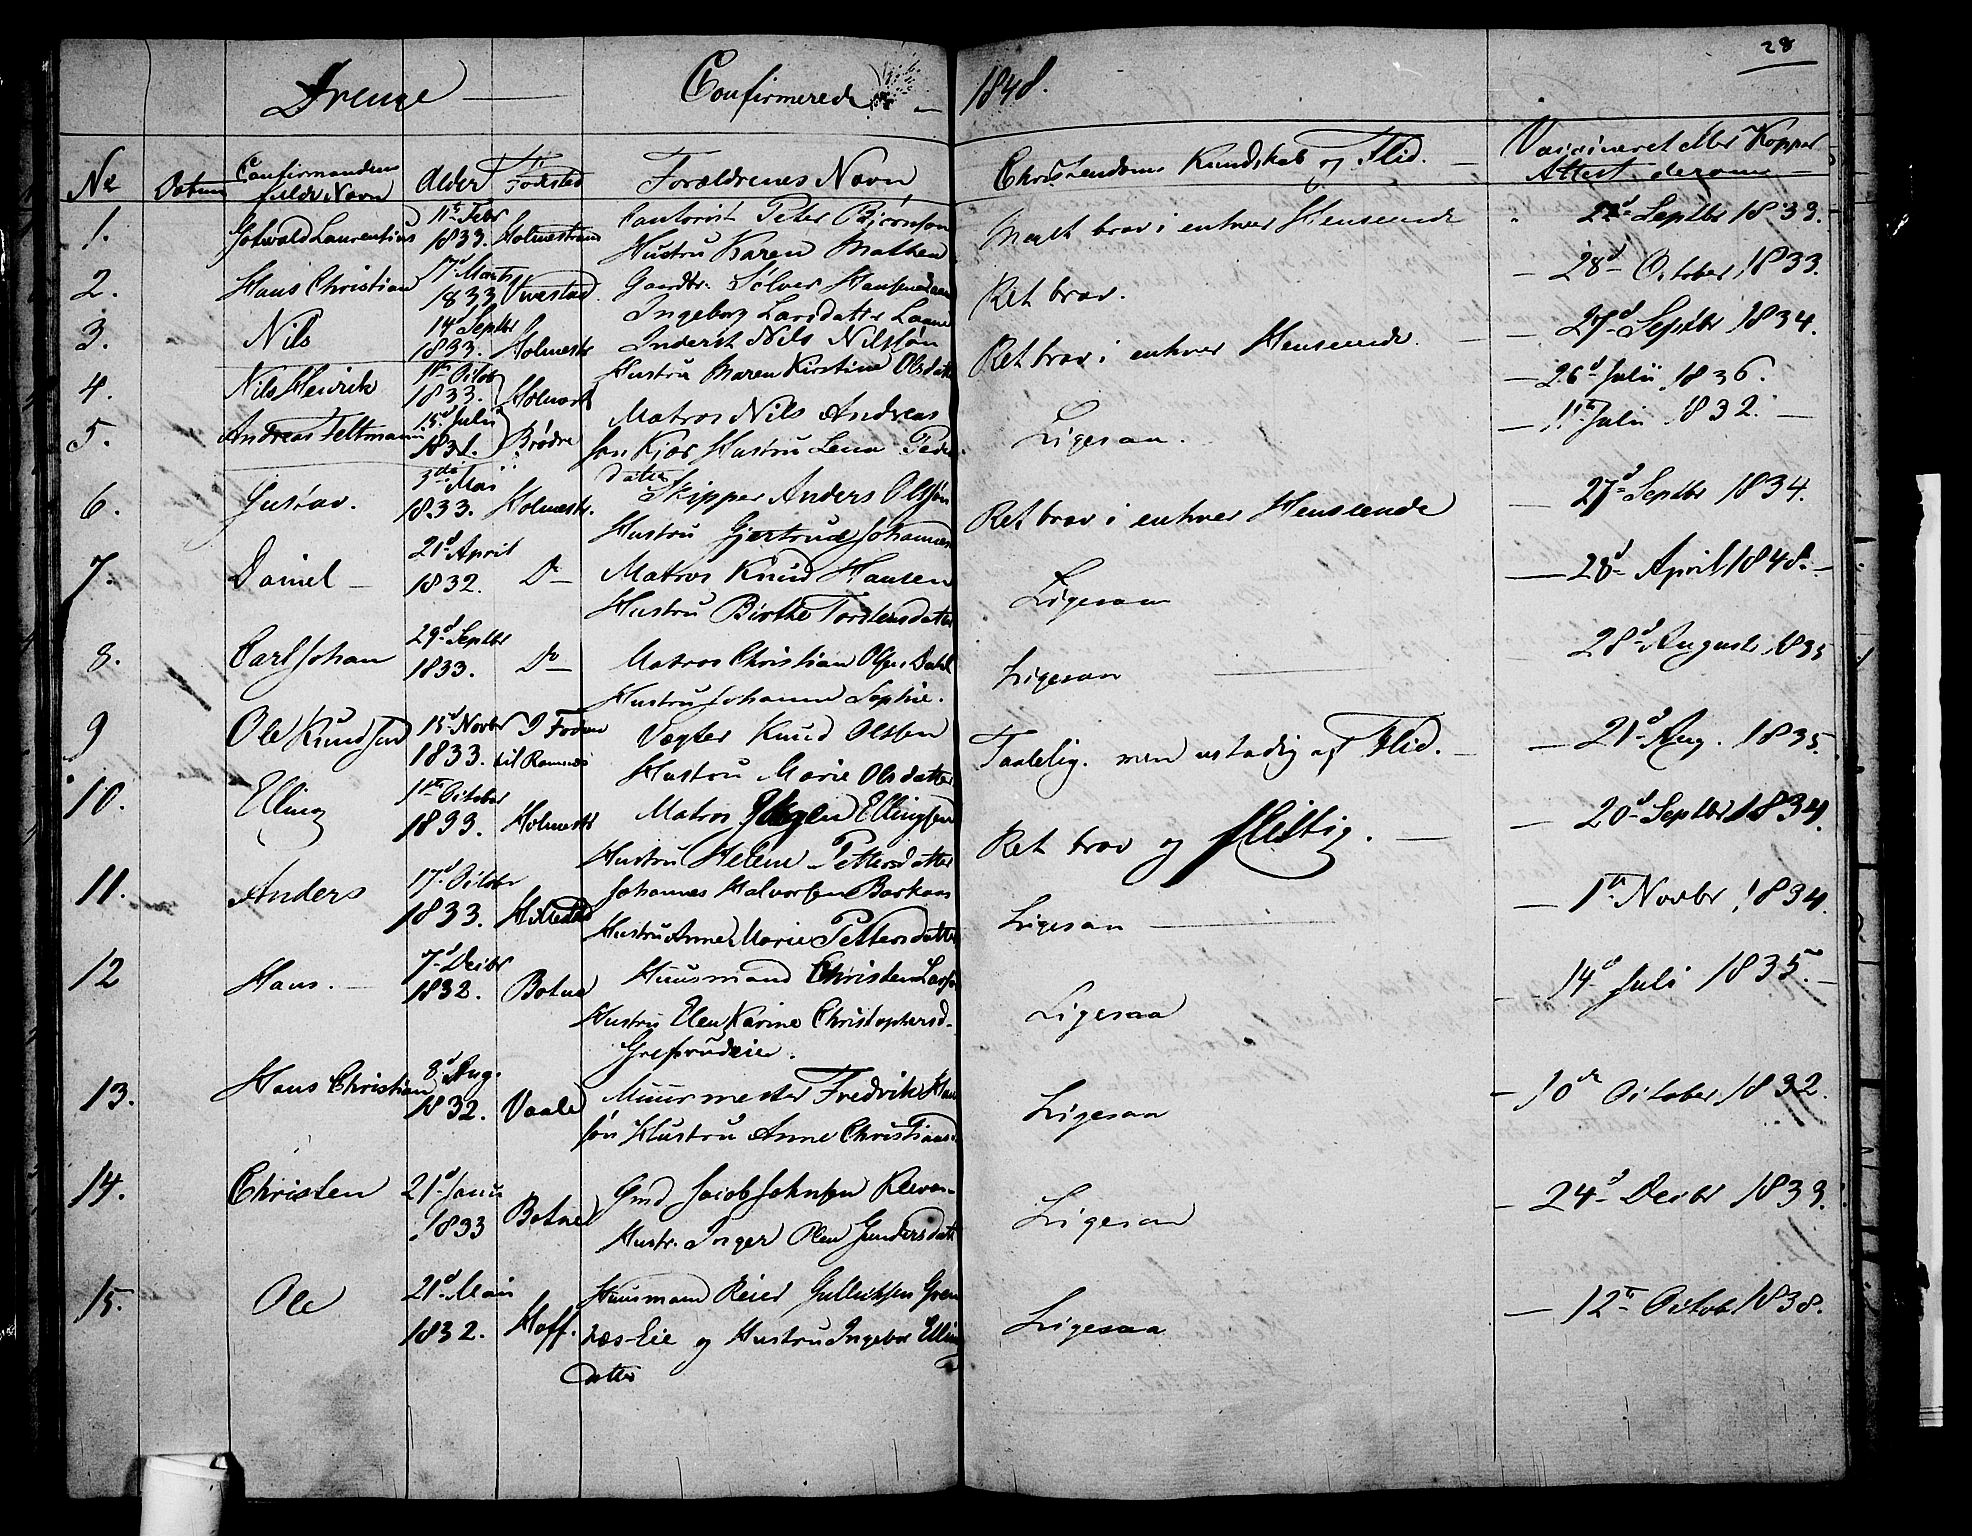 28
Drenge — Confirmerede — 1848.
No Datum Confirmandens fulde Navn Alder Födsted Forældrenes Navn Christendoms Kundskab og Flid. — Vaccineret eller Kopper Attest derom —
1. Gotvald Laurentius 11te Febr 1833. Holmestrand Peter Bjørnson Hustru Karen Mathea Meget brav i enhver Henseende 22d Septbr 1833.
2. Hans Christian 17d Marts 1833 Gaardbr. Sølver Hansen Ingeborg Larsdatter Ret brav. — 28d October 1833.
3. Nils 14 Septbr 1833. Holmestr Inderst Nils Nilssøn Hustru Maren Kirstine Olsdatter Ret brav i enhver Henseende. — 27d Septbr 1834.
4. Nils Henrik 1te Octob 1833. Holmestr — 26d Julii 1836.
5. Andreas Feltmann 15d Julii 1831. Brödre Matros Nils Andreas sen Kjær Hustru Lena Peders datter Ligesaa. — 11te Julii 1832. —
6. Gustav. 3die Mai 1833. Holmestr. Skipper Anders Olssøn Hustru Gjertrud Johannes Ret brav i enhver Henseende — 27d Septbr 1834.
7. Daniel — 21d April 1832. Do — Matros Knud Hansen Hustru Birthe Torstensdatter Ligesaa — 28d April 1848. —
8. Carl Johan 29d Septbr 1833. Do — Matros Christian Olsen Dahl Hustru Johanne Sophie. Ligesaa — 28d August 1835
9 Ole Knudsen 15d Novbr 1833. til Ramnes Vægter Knud Olssen Hustru Marie Olsdatter Taalelig. men ustadig af Flid. — 21d Aug. 1835.
10. Elling 1te October 1833. Holmestr Matros Ellingsen Hustru Helene Pettersdatter Ret brav og flittig. — 20d Septbr 1834.
11. Anders 17d October 1833. Hillestad Johannes Halvorsen Hustru Anne Marie Pettersdatter Ligesaa — 1te Novbr 1834.
12 Hans. — 7d Decbr 1832. Botne Huusmand Christen Lars Hustru Elen Karine Christophersd. Ligesaa — 14d Juli 1835. —
13. Hans Christian 8d Aug. 1832. Vaale Muurmester Fredrik Han søn Hustru Anne Christians. Ligesaa — 10de October 1832.
14. Christen 21d Janu 1833 Botne Gmd Jacob Johnsen Hustr. Inger Olea Gundersdatt Ligesaa — 24d Decbr 1833.
15. Ole 21d Mai 1832. Hoff. Huusmand Reier Gulliksen Gren næs-Eie og Hustru Ingebor Elling datter Ligesaa — 12te Octob. 1838.